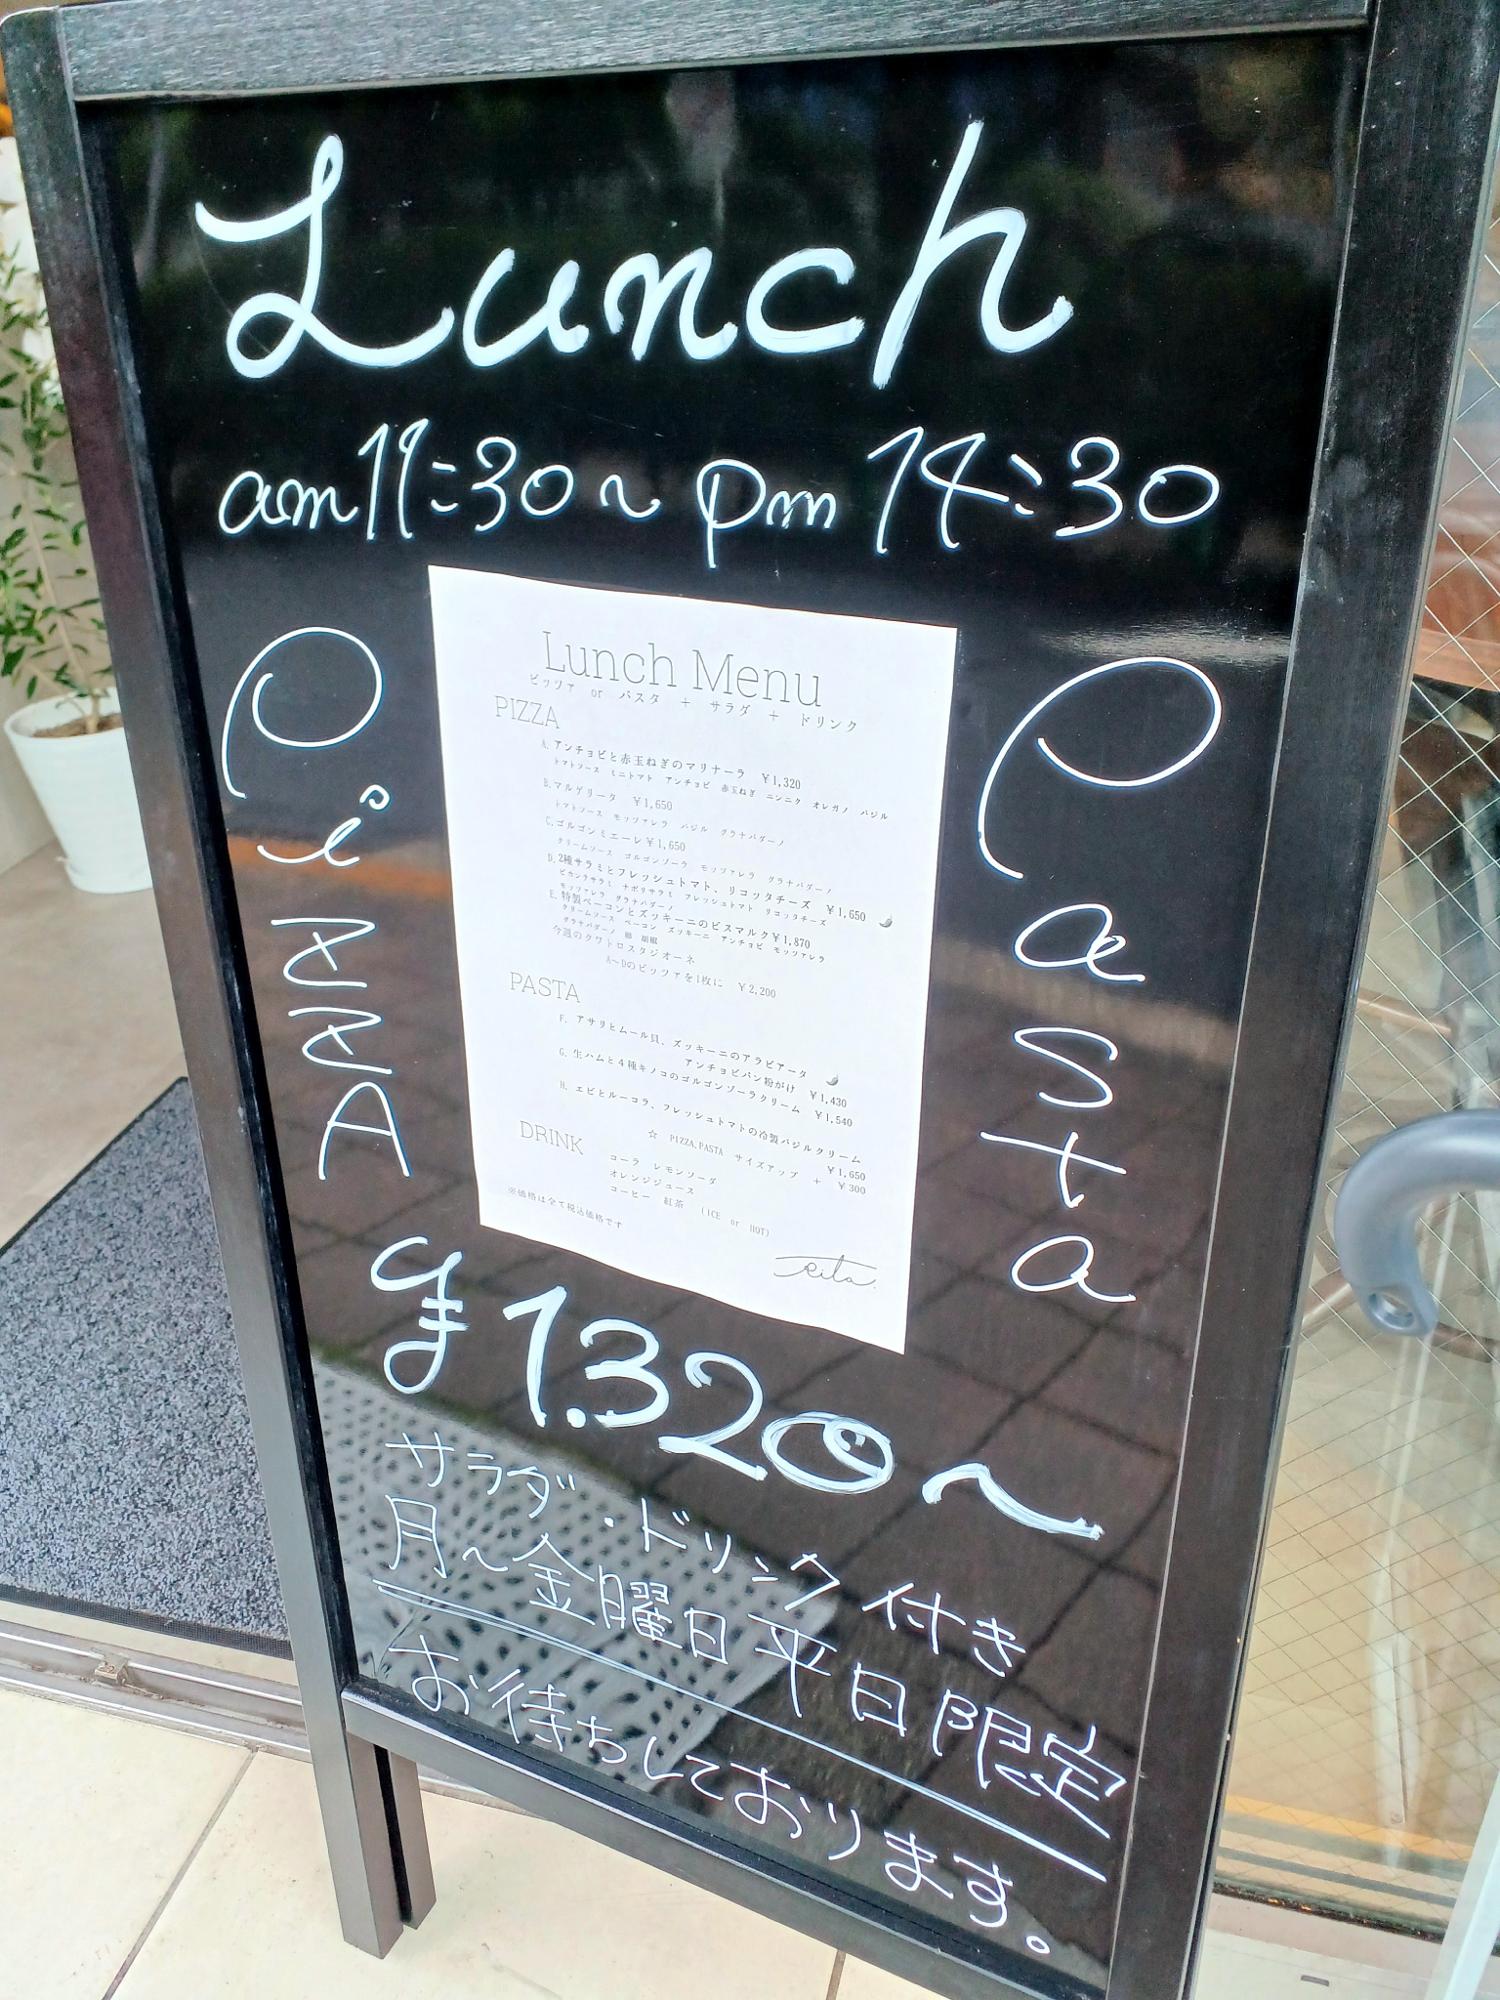 Lunch
am 11:30~pm 14:30
PiZZA
Pasta
Lunch Menu
ピッツァ or パスタ + サラダ + ドリンク
PIZZA
A.アンチョビと赤玉ねぎのマリナーラ ¥1,320
トマトソース ミニトマト アンチョビ 赤玉ねぎ ニンニク オレガノ バジル
B.マルゲリータ ¥1,650
トマトソース モッツァレラ バジル グラナパダーノ
C.ゴルゴンミエーレ¥1,650
クリームソース ゴルゴンゾーラ モッツァレラ グラナパダーノ
D.2種サラミとフレッシュトマト、リコッタチーズ ¥1,650
ピカンテサラミ ナポリサラミ フレッシュトマト リコッタチーズ
モッツァレラ グラナパダーノ
E.特製ベーコンとズッキーニのビスマルク¥1,870
クリームソース ベーコン ズッキーニ アンチョビ モッツァレラ
グラナパダーノ 卵 胡椒
今週のクワトロスタジオーネ
A~Dのピッツァを1枚に ¥2,200
PASTA
F. アサリとムール貝、ズッキーニのアラビアータ
アンチョビパン粉がけ ¥1,430
G.生ハムと4種キノコのゴルゴンゾーラクリーム ¥1,540
H. エビとルーコラ、フレッシュトマトの冷製バジルクリーム
¥1,650
☆ PIZZA,PASTA サイズアップ + ¥300
DRINK
コーラ レモンソーダ
オレンジジュース
コーヒー 紅茶 (ICE or HOT)
※価格は全て税込価格です
Rita.
¥1.320~
サラダ・ドリンク付き
月~金曜日平日限定
お待ちしております。